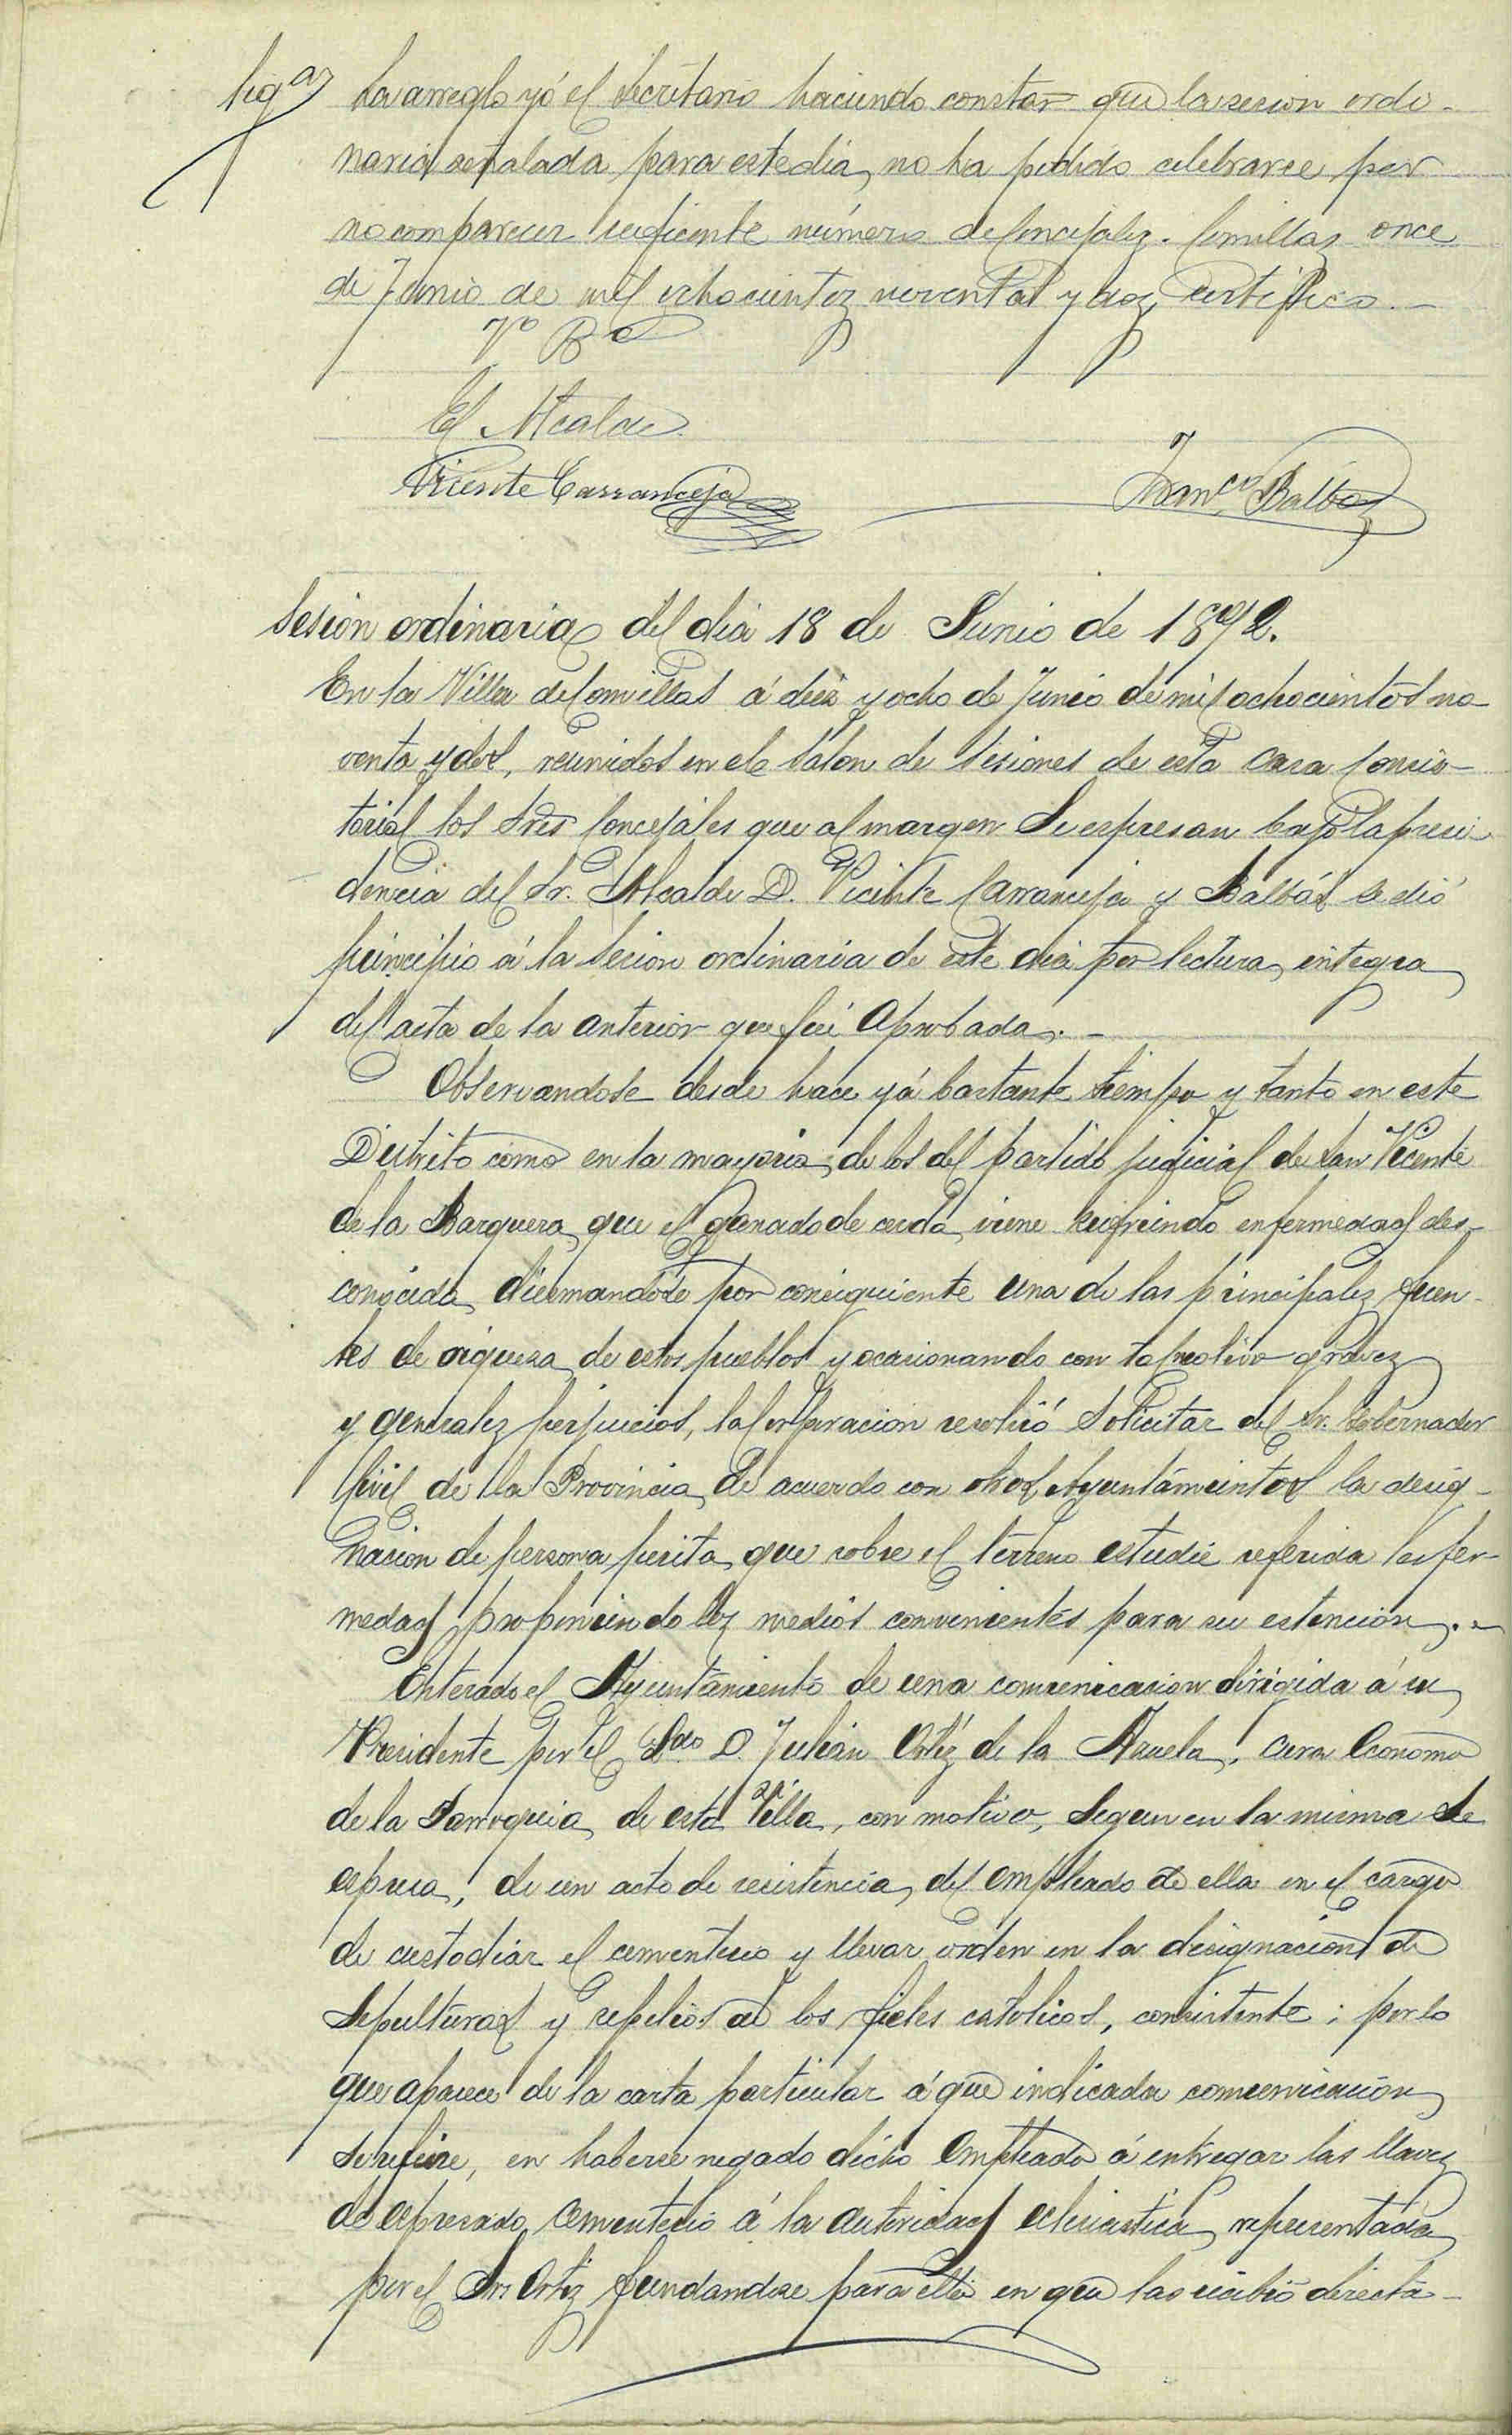 Dig.ª La arreglo yó el Secretario haciendo constar que la sesion ordi-
naria señalada para este dia, no ha podido celebrarse por
no comparecer suficiente número de Concejales. Comillas once
de Junio de mil ochocientos noventa y dos, certifico.-
Vº Bº
El Alcalde
Vicente Carranceja
Franco Balbas
Sesion ordinaria del dia 18 de Junio de 1892.
En la Villa de Comillas á diez y ocho de Junio de mil ochocientos no-
venta y dos, reunidos en el Salon de Sesiones de esta Casa Consis-
torial los tres Concejales que al margen Se espresan bajo la presi-
dencia del Sr. Alcalde D. Vicente Carranceja y Balbás se dió
principio á la Sesion ordinaria de este dia por lectura integra
del acta de la anterior que fué Aprobada.-
Observandose desde hace yá bastante tiempo y tanto en este
Distrito como en la mayoria de los del partido judicial de San Vicente
de la Barquera, que el ganado de cerda viene sufriendo enfermedad des-
conocida, diezmandose por consiguiente una de las principales fuen-
tes de riqueza de estos pueblos y ocasionando con tal motivo graves
y generales perjuicios, la Corporacion resolvió Solicitar del Sr. Gobernador
Civil de la Provincia, de acuerdo con otros Ayuntamientos la desig-
nacion de persona perita, que sobre el terreno estudie referida enfer-
medad proponiendo los medios convenientes para su estincion.-
Enterado el Ayuntamiento de una comunicacion dirigida á su
Presidente por el Ldo D. Julián Ortiz de la Azuela, cura Económo
de la Parroquia de esta Villa, con motivo, Segun en la misma Se
espresa, de un acto de resistencia, del empleado de ella en el cargo
de custodiar el cementerio y llevar orden en la designacion de
Sepulturas y sepelios de los fieles catolicos, consistente; por lo
que aparece de la carta particular á que indicada comunicacion
Se refiere, en haberse negado dicho Empleado á entregar las llaves
de espresado Cementerio á la autoridad eclesiastica, representada
por el Sr. Ortiz fundandose para ello en que las recibió directa-